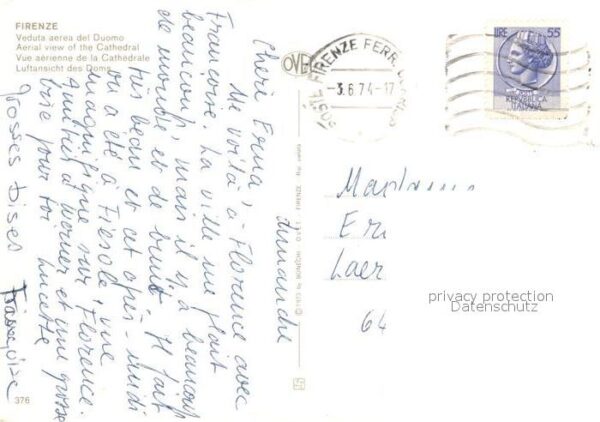 FIRENZE
Veduta aerea del Duomo
Aerial view of the Cathedral
Vue aérienne de la Cathédrale
Luftansicht des Doms
dimanche
Chère Erna,
Me voilà à Florence avec
Françoise. La ville me plaît
beaucoup, mais il y a beaucoup
de monde et de bruit. Il fait
très beau et cet après-midi
on a été à Fiesole, vue
magnifique sur Florence.
Amitiés à Werner et une grosse
bise pour toi Lucette
Grosses bises Françoise
376
FIRENZE FERR.
-3.6.74-17
LIRE 55
REPUBBLICA
ITALIANA
Eri
Laer
64
privacy protection
Datenschutz